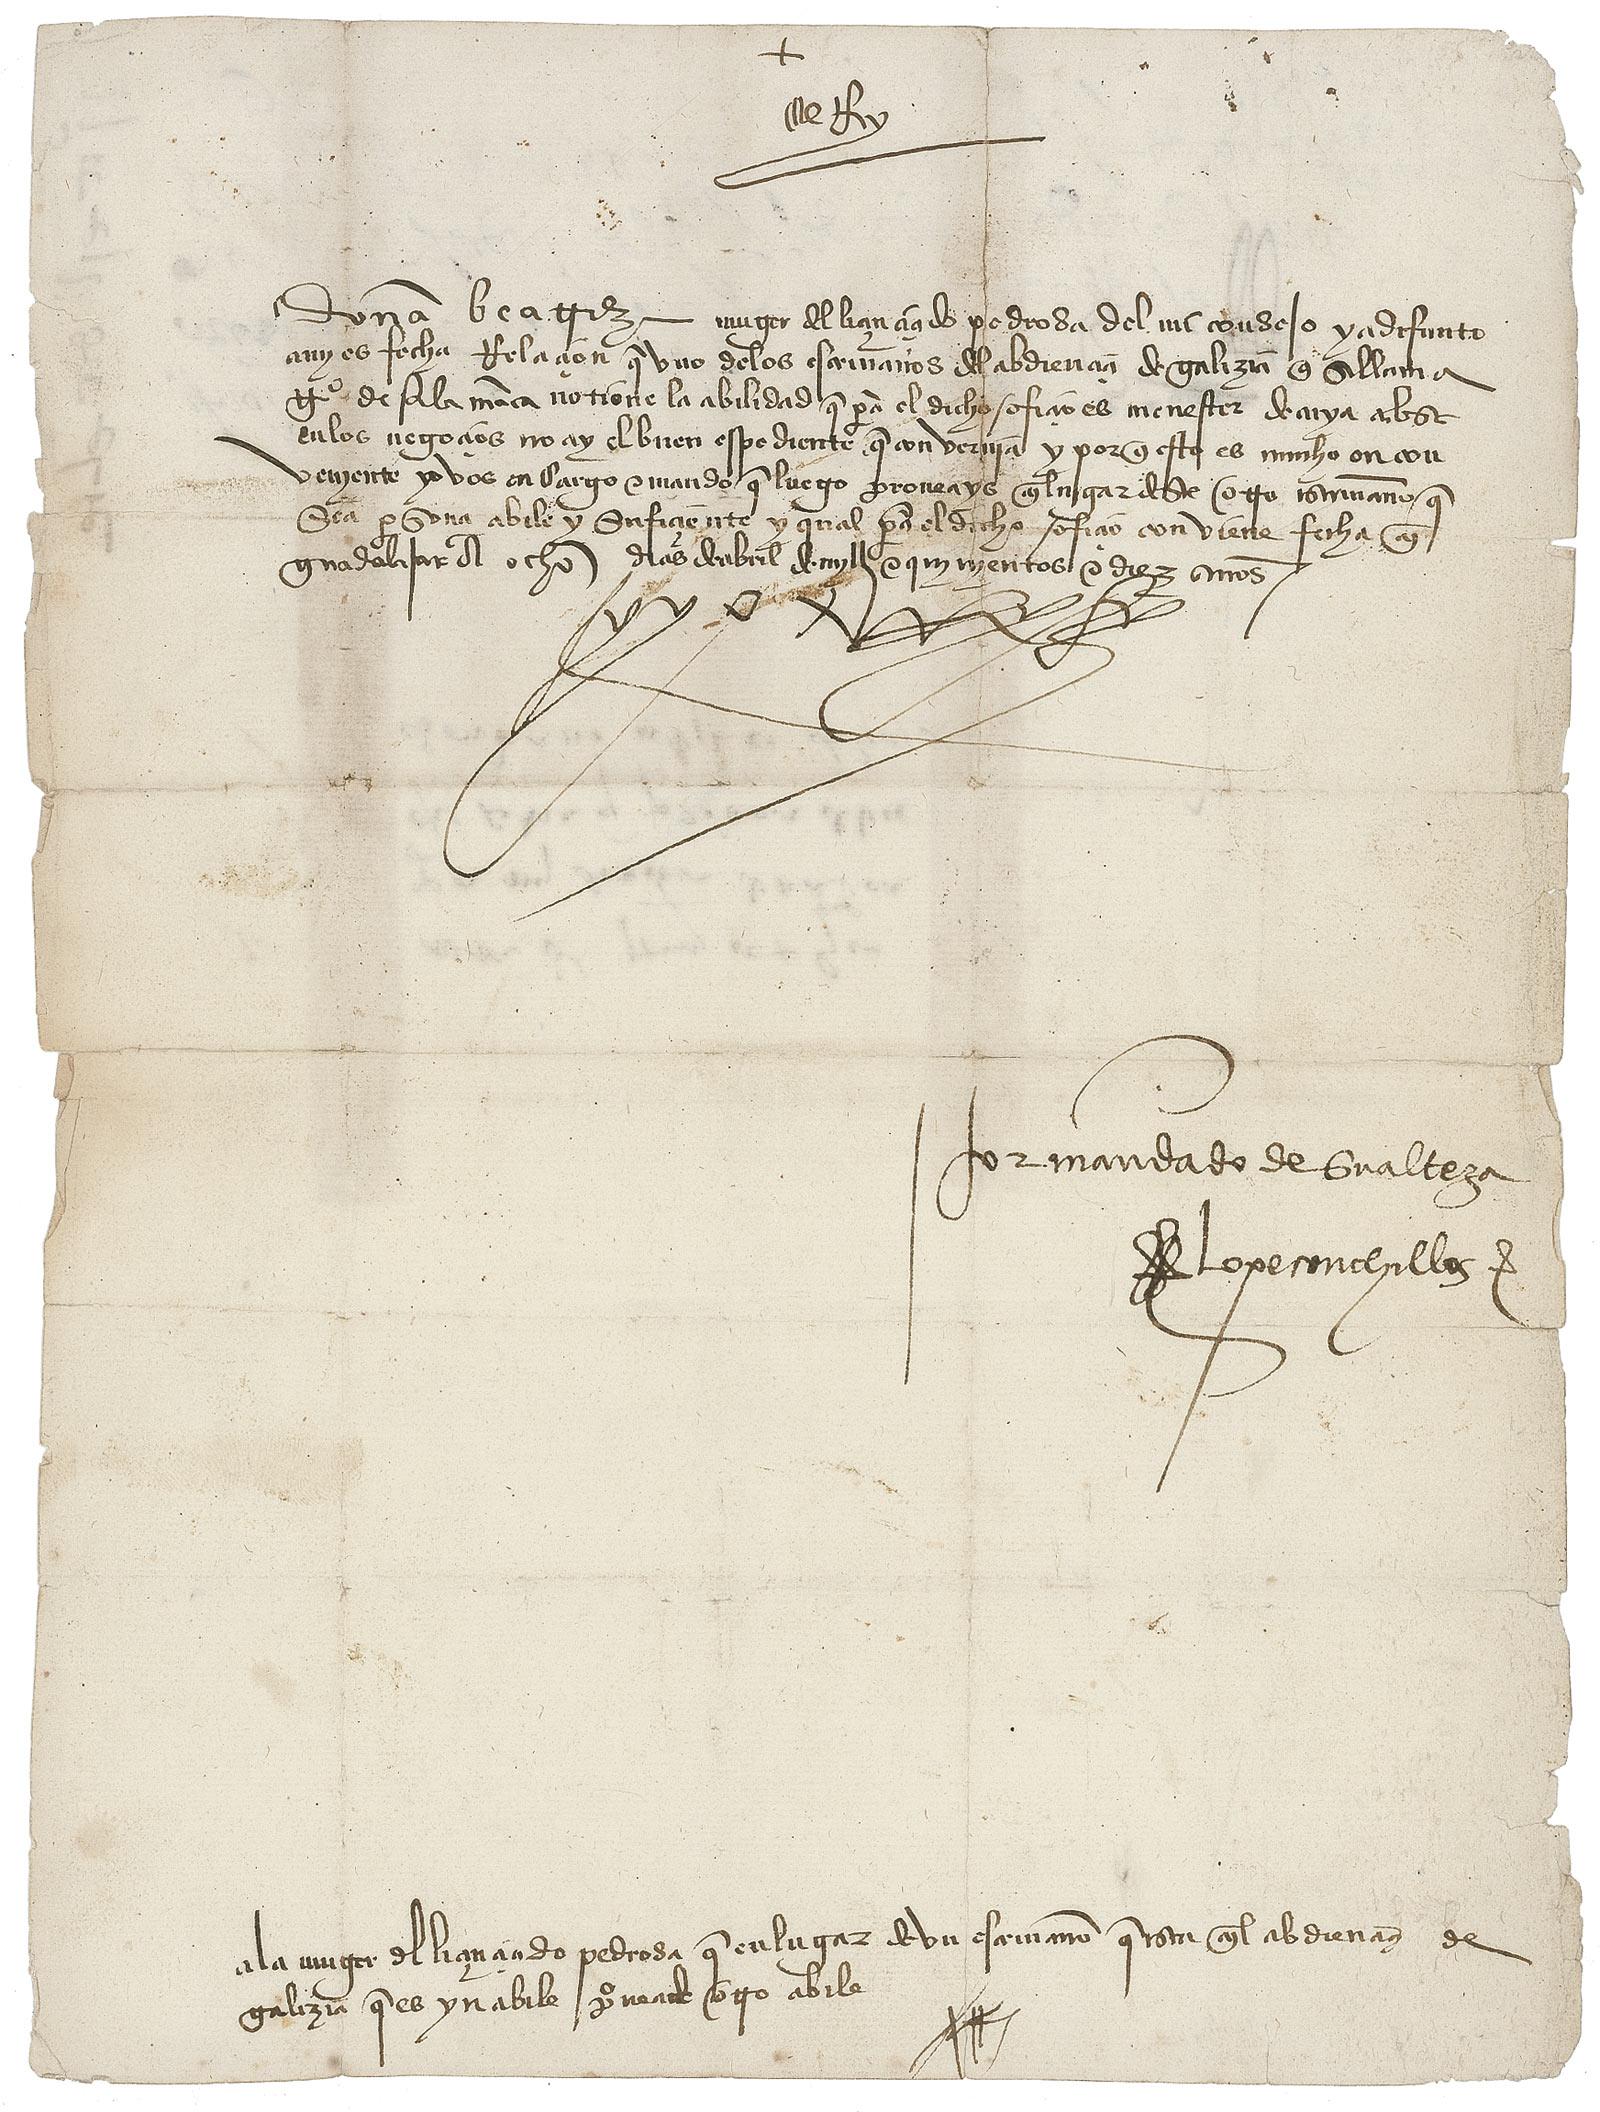 +
El Rey
doña beatriz muger del liçençiado pedrosa del mi consejo ya defunto
a my es fecha Relaçion q uno delos escrivanos del abdiençia de galizia q se llama
de salamãca no tiene la abilidad q pa el dicho ofiçio es menester de cuya cabsa
en los negoçios no ay el buen espediente q convernia y porq esto es mucho yncon
veniente yo vos encargo e mando q luego proveays en lugar deste otro escrivano q
sea psona abile y sufiçiente y qual pa el dicho ofiçio conviene fecha en
guadalajar a ocho dias de abril de myll e quinyentos e diez años
yo el Rey
por mandado de su alteza
Lope conchillos
ala muger del liçençiado pedrosa q en lugar de un escrivano q esta en el abdiençia de
galizia q es ynabile provea de otro abile